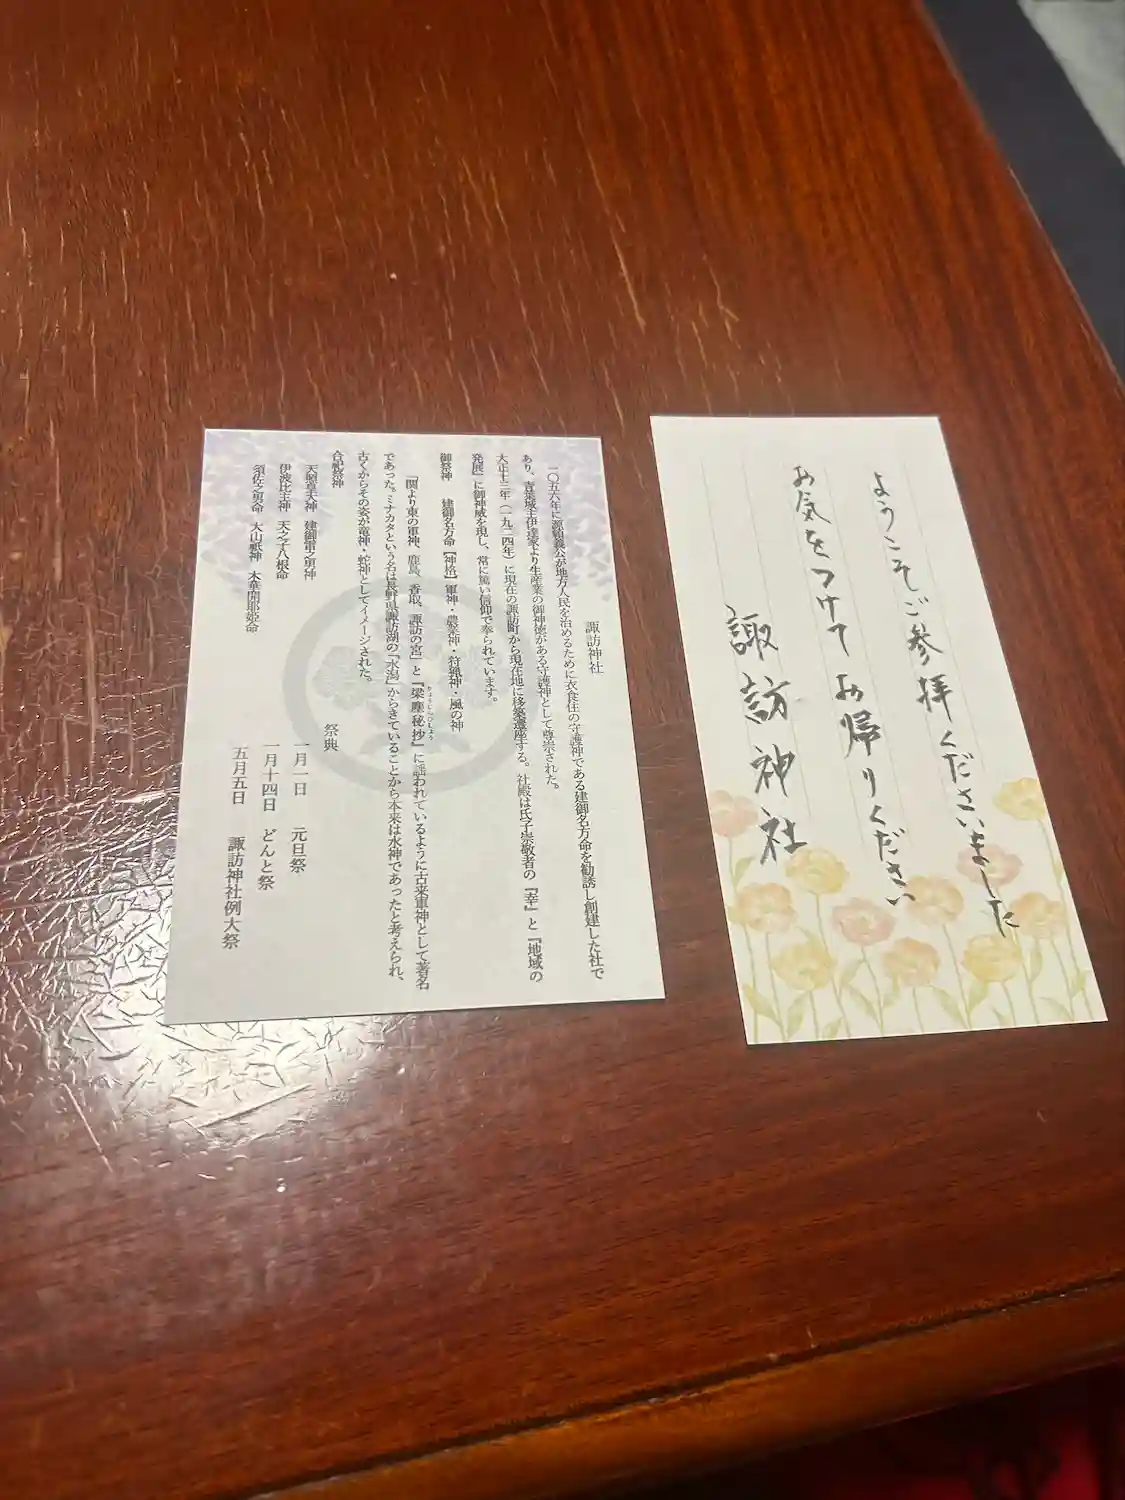 諏訪神社
一〇五六年に源頼義公が地方人民を治めるために衣食住の守護神である建御名方命を勧誘し創建した社で
あり、青葉城主伊達家より生産業の御神徳がある守護神として尊崇された。
大正十三年（一九二四年）に現在の諏訪町から現在地に移築遷座する。社殿は氏子崇敬者の『幸』と『地域の
発展』に御神威を現し、常に篤い信仰で奉られています。
御祭神 建御名方命【神格】軍神・農業神・狩猟神・風の神
「関より東の軍神、鹿島、香取、諏訪の宮」と『梁塵秘抄』に謡われているように古来軍神として著名
りょうじんひしょう
であった。ミナカタという名は長野県諏訪湖の「水潟」からきていることから本来は水神であったと考えられ、
古くからその姿が竜神・蛇神としてイメージされた。
合祀祭神
天照皇大神 建御雷之男神
伊波比主神 天之子八根命
須佐之男命 大山祇神 木華開耶姫命
祭典
一月一日 元旦祭
一月十四日 どんと祭
五月五日 諏訪神社例大祭
ようこそご参拝くださいました
お気をつけてお帰りください
諏訪神社